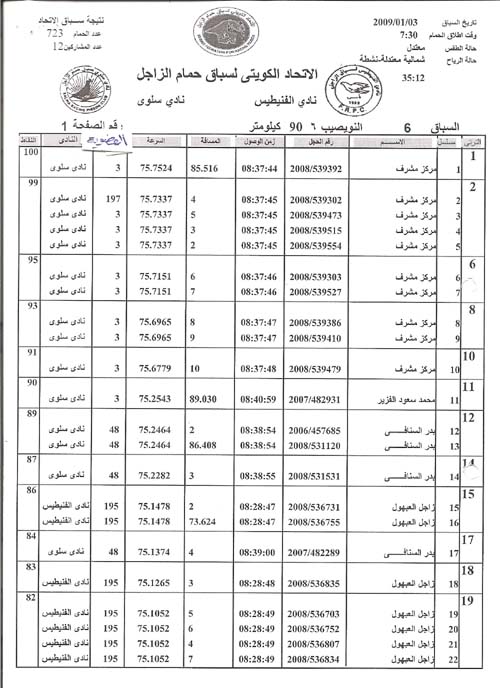 نتيجة سباق الإتحاد
عدد الحمام 723
عدد المشاركين 12
تاريخ السباق 2009/01/03
وقت اطلاق الحمام 7:30
حالة الطقس معتدل
حالة الرياح شمالية معتدلة-نشطة
35:12
الاتحاد الكويتى لسباق حمام الزاجل
نادي الفنيطيس نادي سلوى
F.R.P.C.
السباق 6 النويصيب ٦ 90 كيلومتر رقم الصفحة 1
الترتي مسلسل الاســـم رقم الحجل زمن الوصول المسافة السرعة العضوية النادى النقاط
1 100
1 مركز مشرف 2008/539392 08:37:44 85.516 75.7524 3 نادي سلوى
2 99
2 مركز مشرف 2008/539302 08:37:45 4 75.7337 197 نادي سلوى
3 مركز مشرف 2008/539473 08:37:45 5 75.7337 3 نادي سلوى
4 مركز مشرف 2008/539515 08:37:45 3 75.7337 3 نادي سلوى
5 مركز مشرف 2008/539554 08:37:45 2 75.7337 3 نادي سلوى
6 95
6 مركز مشرف 2008/539303 08:37:46 6 75.7151 3 نادي سلوى
7 مركز مشرف 2008/539527 08:37:46 7 75.7151 3 نادي سلوى
8 93
8 مركز مشرف 2008/539386 08:37:47 8 75.6965 3 نادي سلوى
9 مركز مشرف 2008/539410 08:37:47 9 75.6965 3 نادي سلوى
10 91
10 مركز مشرف 2008/539479 08:37:48 10 75.6779 3 نادي سلوى
11 90
11 محمد سعود الفزير 2007/482931 08:40:59 89.030 75.2543 3 نادي سلوى
12 89
12 بدر السنافـــي 2006/457685 08:38:54 2 75.2464 48 نادي سلوى
13 بدر السنافـــي 2008/531120 08:38:54 86.408 75.2464 48 نادي سلوى
14 87
14 بدر السنافـــي 2008/531531 08:38:55 3 75.2282 48 نادي سلوى
15 86
15 زاجل العبهول 2008/536731 08:28:47 2 75.1478 195 نادي الفنيطيس
16 زاجل العبهول 2008/536755 08:28:47 73.624 75.1478 195 نادي الفنيطيس
17 84
17 بدر السنافـــي 2007/482289 08:39:00 4 75.1374 48 نادي سلوى
18 83
18 زاجل العبهول 2008/536835 08:28:48 3 75.1265 195 نادي الفنيطيس
19 82
19 زاجل العبهول 2008/536703 08:28:49 5 75.1052 195 نادي الفنيطيس
20 زاجل العبهول 2008/536752 08:28:49 6 75.1052 195 نادي الفنيطيس
21 زاجل العبهول 2008/536807 08:28:49 4 75.1052 195 نادي الفنيطيس
22 زاجل العبهول 2008/536834 08:28:49 7 75.1052 195 نادي الفنيطيس